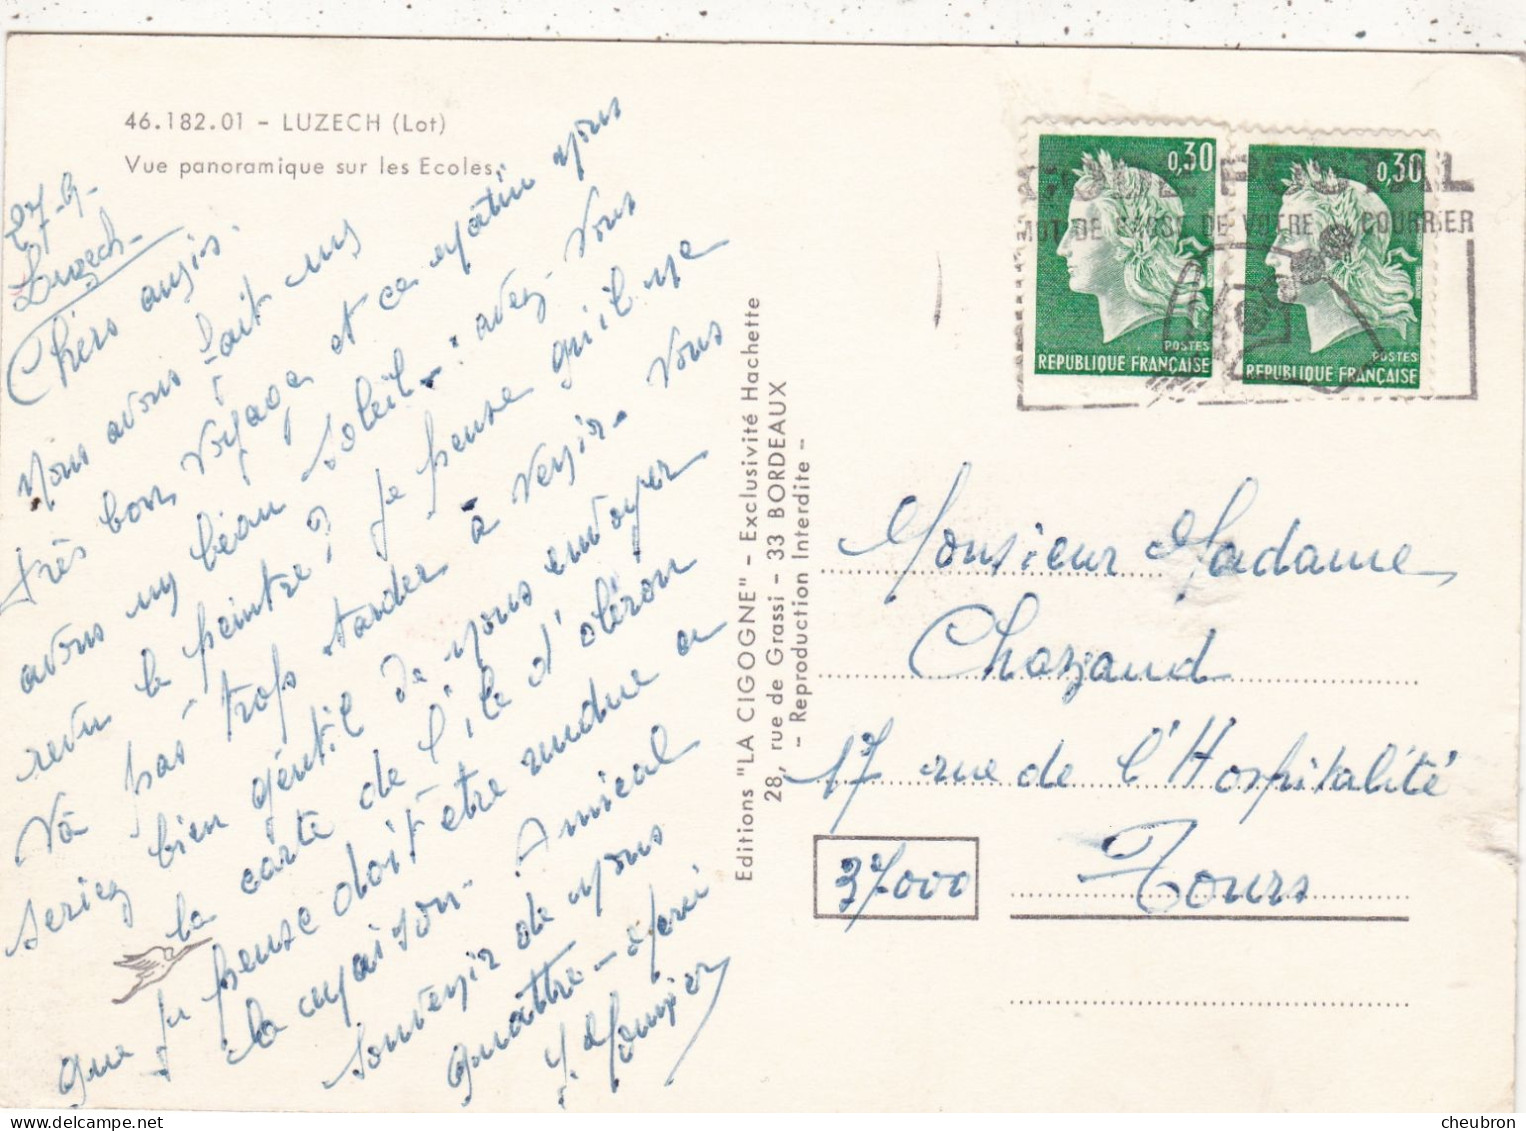 46.182.01 - LUZECH (Lot)
Vue panoramique sur les Ecoles.
27-9-
Luzech-
Chers amis.
Nous avons fait un
très bon voyage et ce matin nous
avons un beau soleil-: avez-vous
revu le peintre? Je pense qu'il ne
va pas trop tarder à venir- Vous
seriez bien gentil de nous envoyer
la carte de l'île d'oléron
que je pense doit être rendue a
la maison- Amical
souvenir de nous
quattre- Merci
Editions "LA CIGOGNE" - Exclusivité Hachette
28, rue de Grassi - 33 BORDEAUX
- Reproduction Interdite -
0,30
POSTES
REPUBLIQUE FRANÇAISE
0,30
POSTES
REPUBLIQUE FRANÇAISE
CODE POSTAL
MOT DE PASSE DE VOTRE COURRIER
Monsieur Madame
Chazaud
17 rue de l'Hospitalité
37000 Tours
cheubron.com